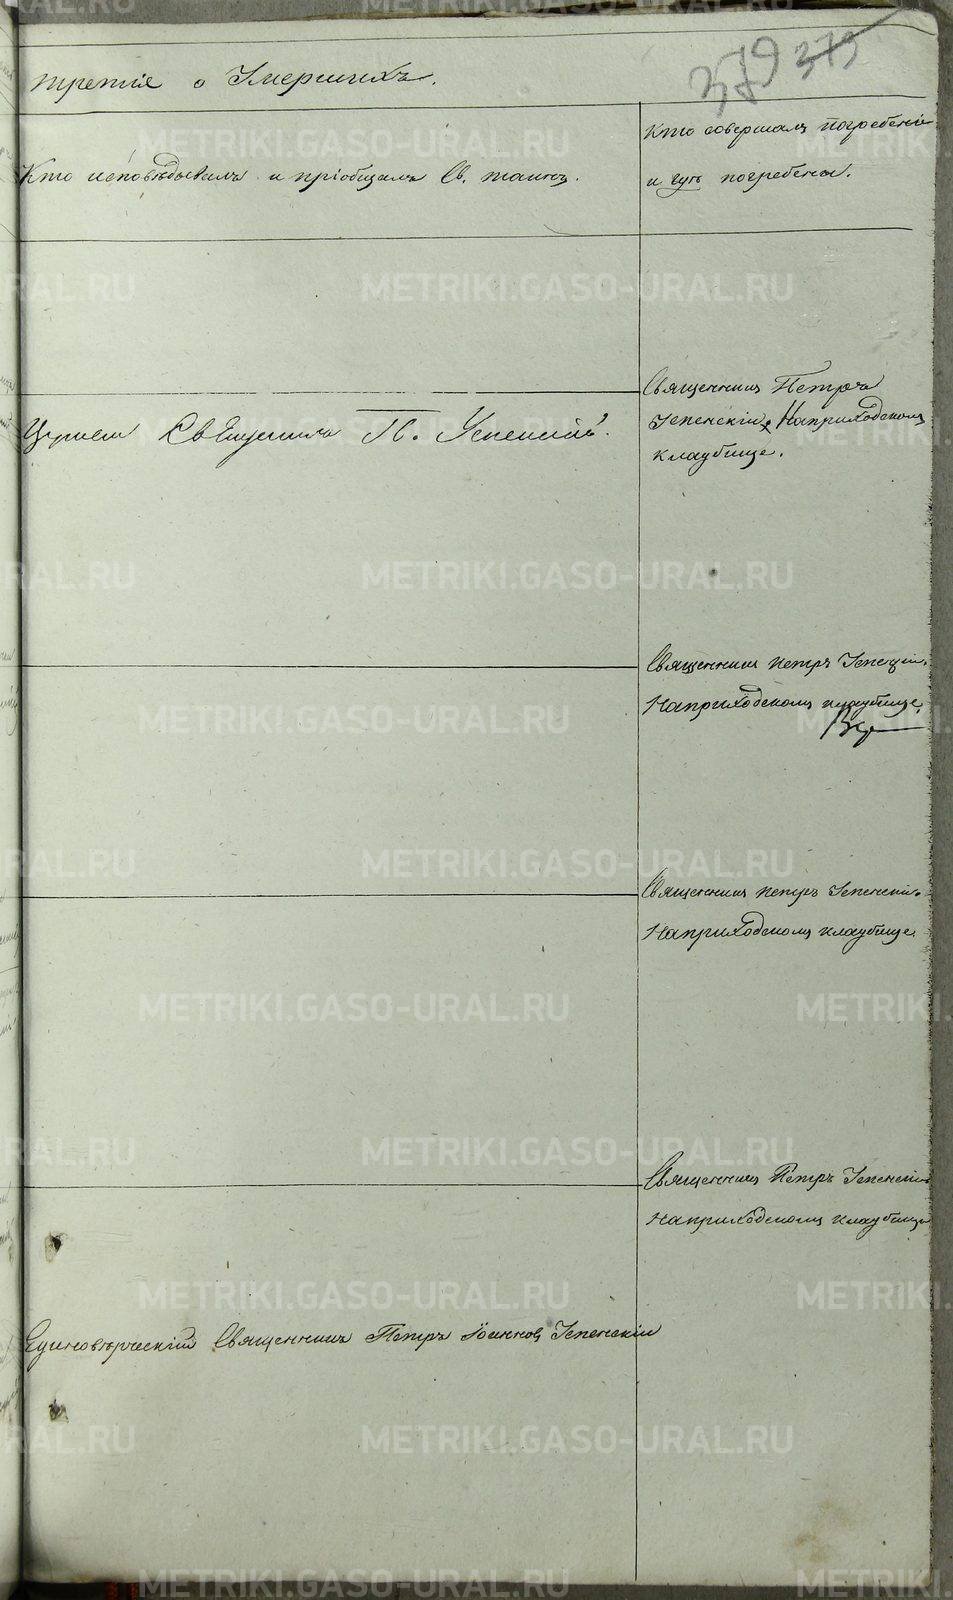 379 375
третія о Умершихъ.
Кто исповѣдывалъ и пріобщалъ Св. таинъ.
Кто совершалъ погребеніе
и гдѣ погребены.
Священникъ Петръ
Успенскій, На приходскомъ
кладбище.
Священникъ П. Успенскій.
Священникъ Петръ Успенскій.
На приходскомъ кладбище.
Священникъ Петръ Успенскій.
На приходскомъ кладбище.
Священникъ Петръ Успенскій
На приходскомъ кладбище
Единовѣрческій Священникъ Петръ Іоанновъ Успенскій
METRIKI.GASO-URAL.RU